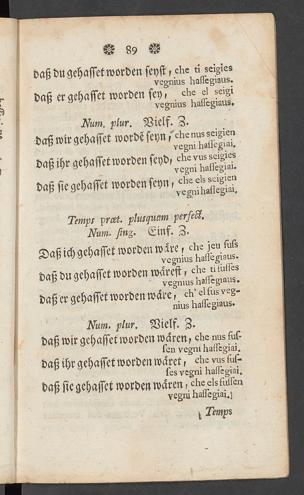 ❉ 89 ❉
daß du gehasset worden seyst, che ti seigies
vegnius hassegiaus.
daß er gehasset worden sey, che el seigi
vegnius hassegiaus.
Num. plur. Vielf. Z.
daß wir gehasset wordē seyn, che nus seigien
vegni hassegiai.
daß ihr gehasset worden seyd, che vus seigies
vegni hassegiai.
daß sie gehasset worden seyn, che els seigien
vegni hassegiai.
Temps præt. plusquam perfect.
Num. sing. Eins. Z.
Daß ich gehasset worden wäre, che jeu fuss
vegnius hassegiaus.
daß du gehasset worden wärest, che ti fusses
vegnius hassegiaus.
daß er gehasset worden wäre, ch' el fus veg-
nius hassegiaus.
Num. plur. Vielf. Z.
daß wir gehasset worden wären, che nus fus-
sen vegni hassegiai.
daß ihr gehasset worden wäret, che vus fus-
ses vegni hassegiai.
daß sie gehasset worden wären, che els fussen
vegni hassegiai.
Temps